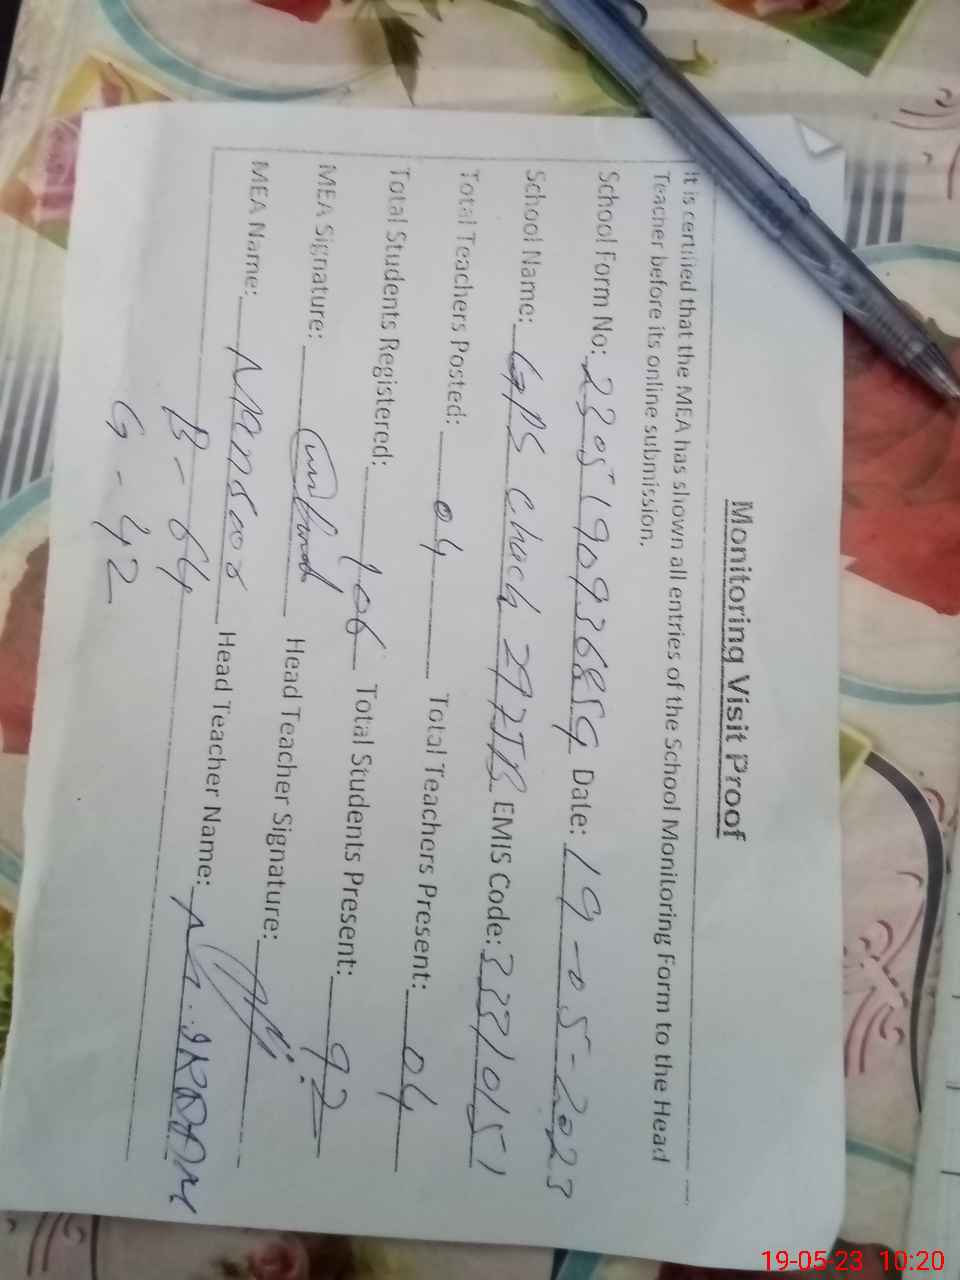 Monitoring Visit Proof
It is certified that the MEA has shown all entries of the School Monitoring Form to the Head
Teacher before its online submission.
School Form No: 2305190936859 Date: 19-05-2023
School Name: GPS Chack 297JB EMIS Code: 33310151
Total Teachers Posted: 04 Total Teachers Present: 04
Total Students Registered: 106 Total Students Present: 92
MEA Signature: Head Teacher Signature:
MEA Name: Mansoor Head Teacher Name:
B - 64
G - 42
19-05-23 10:20